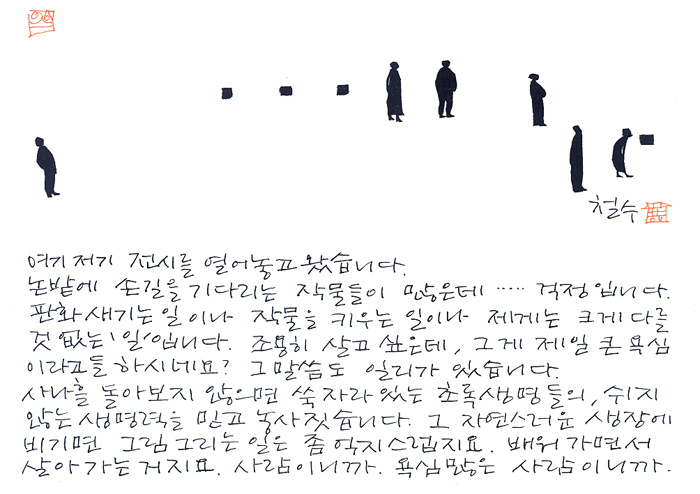 철수
여기저기 전시를 열어놓고 왔습니다.
논밭에 손길을 기다리는 작물들이 많은데 ..... 걱정입니다.
판화 새기는 일이나 작물을 키우는 일이나 제게는 크게 다를
것 없는 '일'입니다. 조용히 살고 싶은데, 그게 제일 큰 욕심
이라고들 하시네요? 그 말씀도 일리가 있습니다.
사나흘 돌아보지 않으면 쑥 자라 있는 초록생명들의, 쉬지
않는 생명력을 믿고 농사짓습니다. 그 자연스러운 생장에
비기면 그림 그리는 일은 좀 억지스럽지요. 배워 가면서
살아가는 거지요. 사람이니까. 욕심많은 사람이니까.